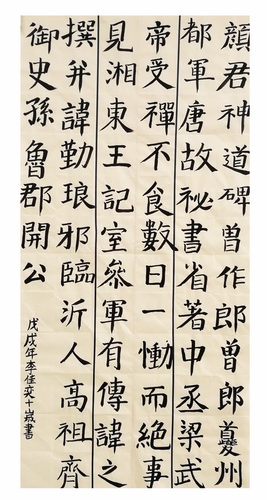 顏君神道碑曾作郎曾郎夔州
都軍唐故祕書省著中丞梁武
帝受禪不食數日一慟而絕事
見湘東王記室參軍有傳諱之
撰并諱勤琅邪臨沂人高祖齊
御史孫魯郡開公
戊戌年李佳奕十歲書